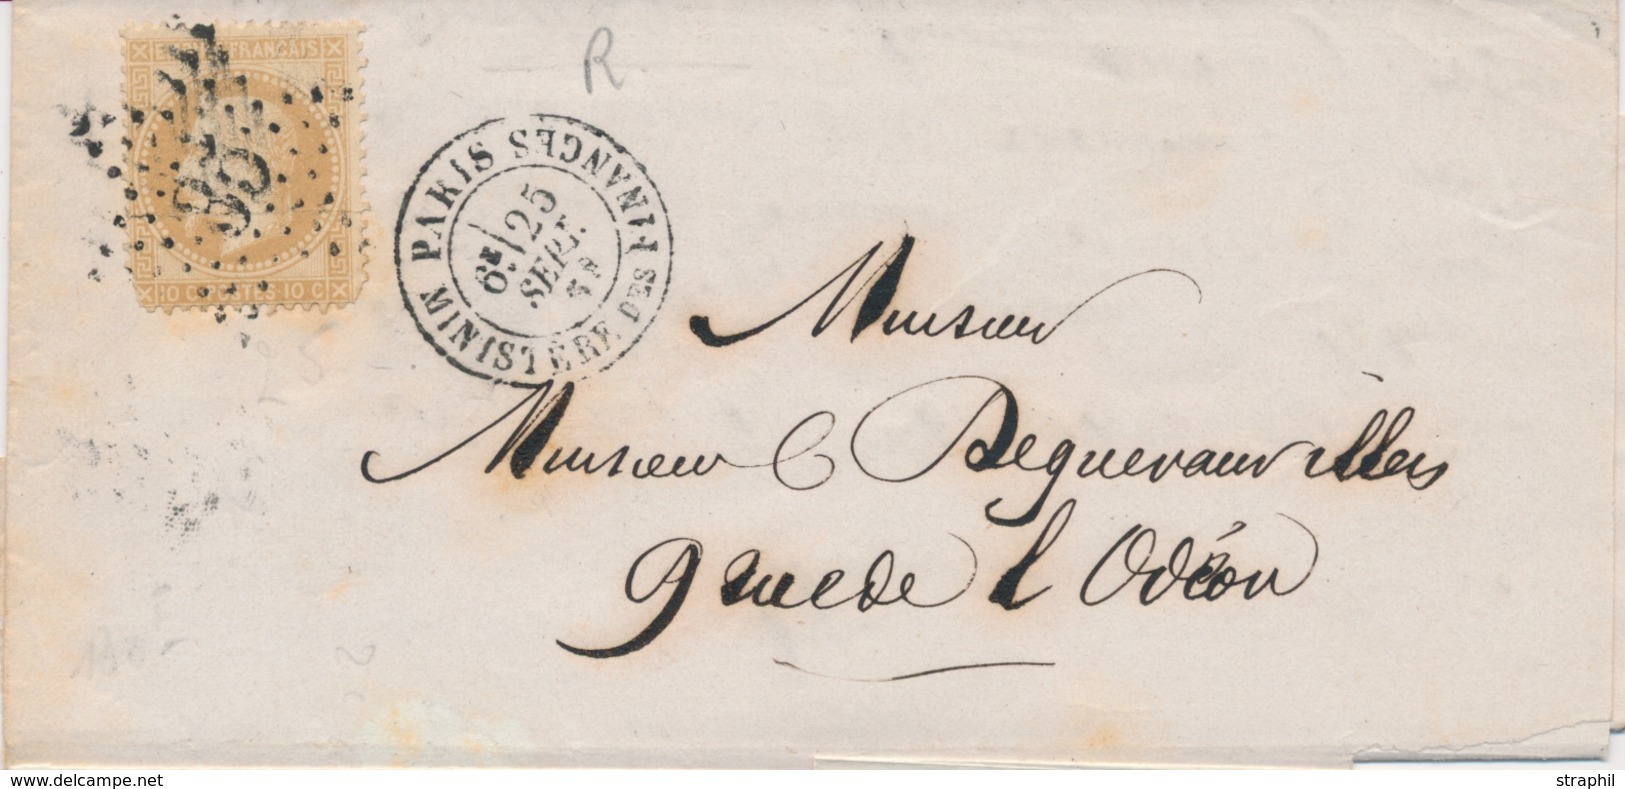 R
EMPIRE FRANÇAIS
35
10 C POSTES 10 C
PARIS
MINISTÈRE DES FINANCES
6E
25
SEPT.
Monsieur
Monsieur C Deguevauvillers
9 rue de l'Odéon
www.delcampe.net
straphil